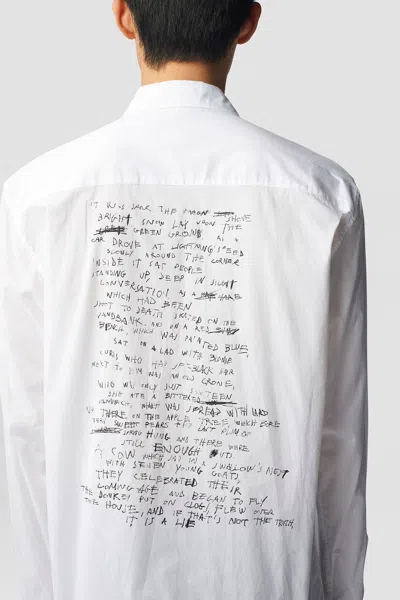 IT WAS DARK THE MOON SHONE
BRIGHT SNOW LAY UPON THE
GREEN GROUND AS A
CAR DROVE AT LIGHTNING SPEED
SLOWLY AROUND THE CORNER
INSIDE IT SAT PEOPLE
STANDING UP, DEEP IN SILENT
CONVERSATION AS A HARE
WHICH HAD BEEN
SHOT TO DEATH SKATED ON THE
SANDBANK AND ON A RED
BENCH, WHICH WAS PAINTED BLUE,
SAT ON A LAD WITH BLONDE
CURLS WHO HAD BLACK HAIR
NEXT TO HIM WAS AN OLD CRONE,
WHO WAS ONLY JUST SIXTEEN
SHE ATE A BUTTERED
WHAT WAS SPREAD WITH LARD
UP THERE ON THE APPLE TREE WHICH BORE
SWEET PEARS THE LAST PLUM OF
HUNG AND THERE WERE
STILL ENOUGH NUTS
A COW WHICH SAT IN A SWALLOW'S NEST
WITH SEVEN YOUNG GOATS
THEY CELEBRATED THEIR
COMING AGE AND BEGAN TO FLY
THE DONKEY PUT ON CLOGS, FLEW OVER
THE HOUSE, AND IF THAT'S NOT THE TRUTH,
IT IS A LIE